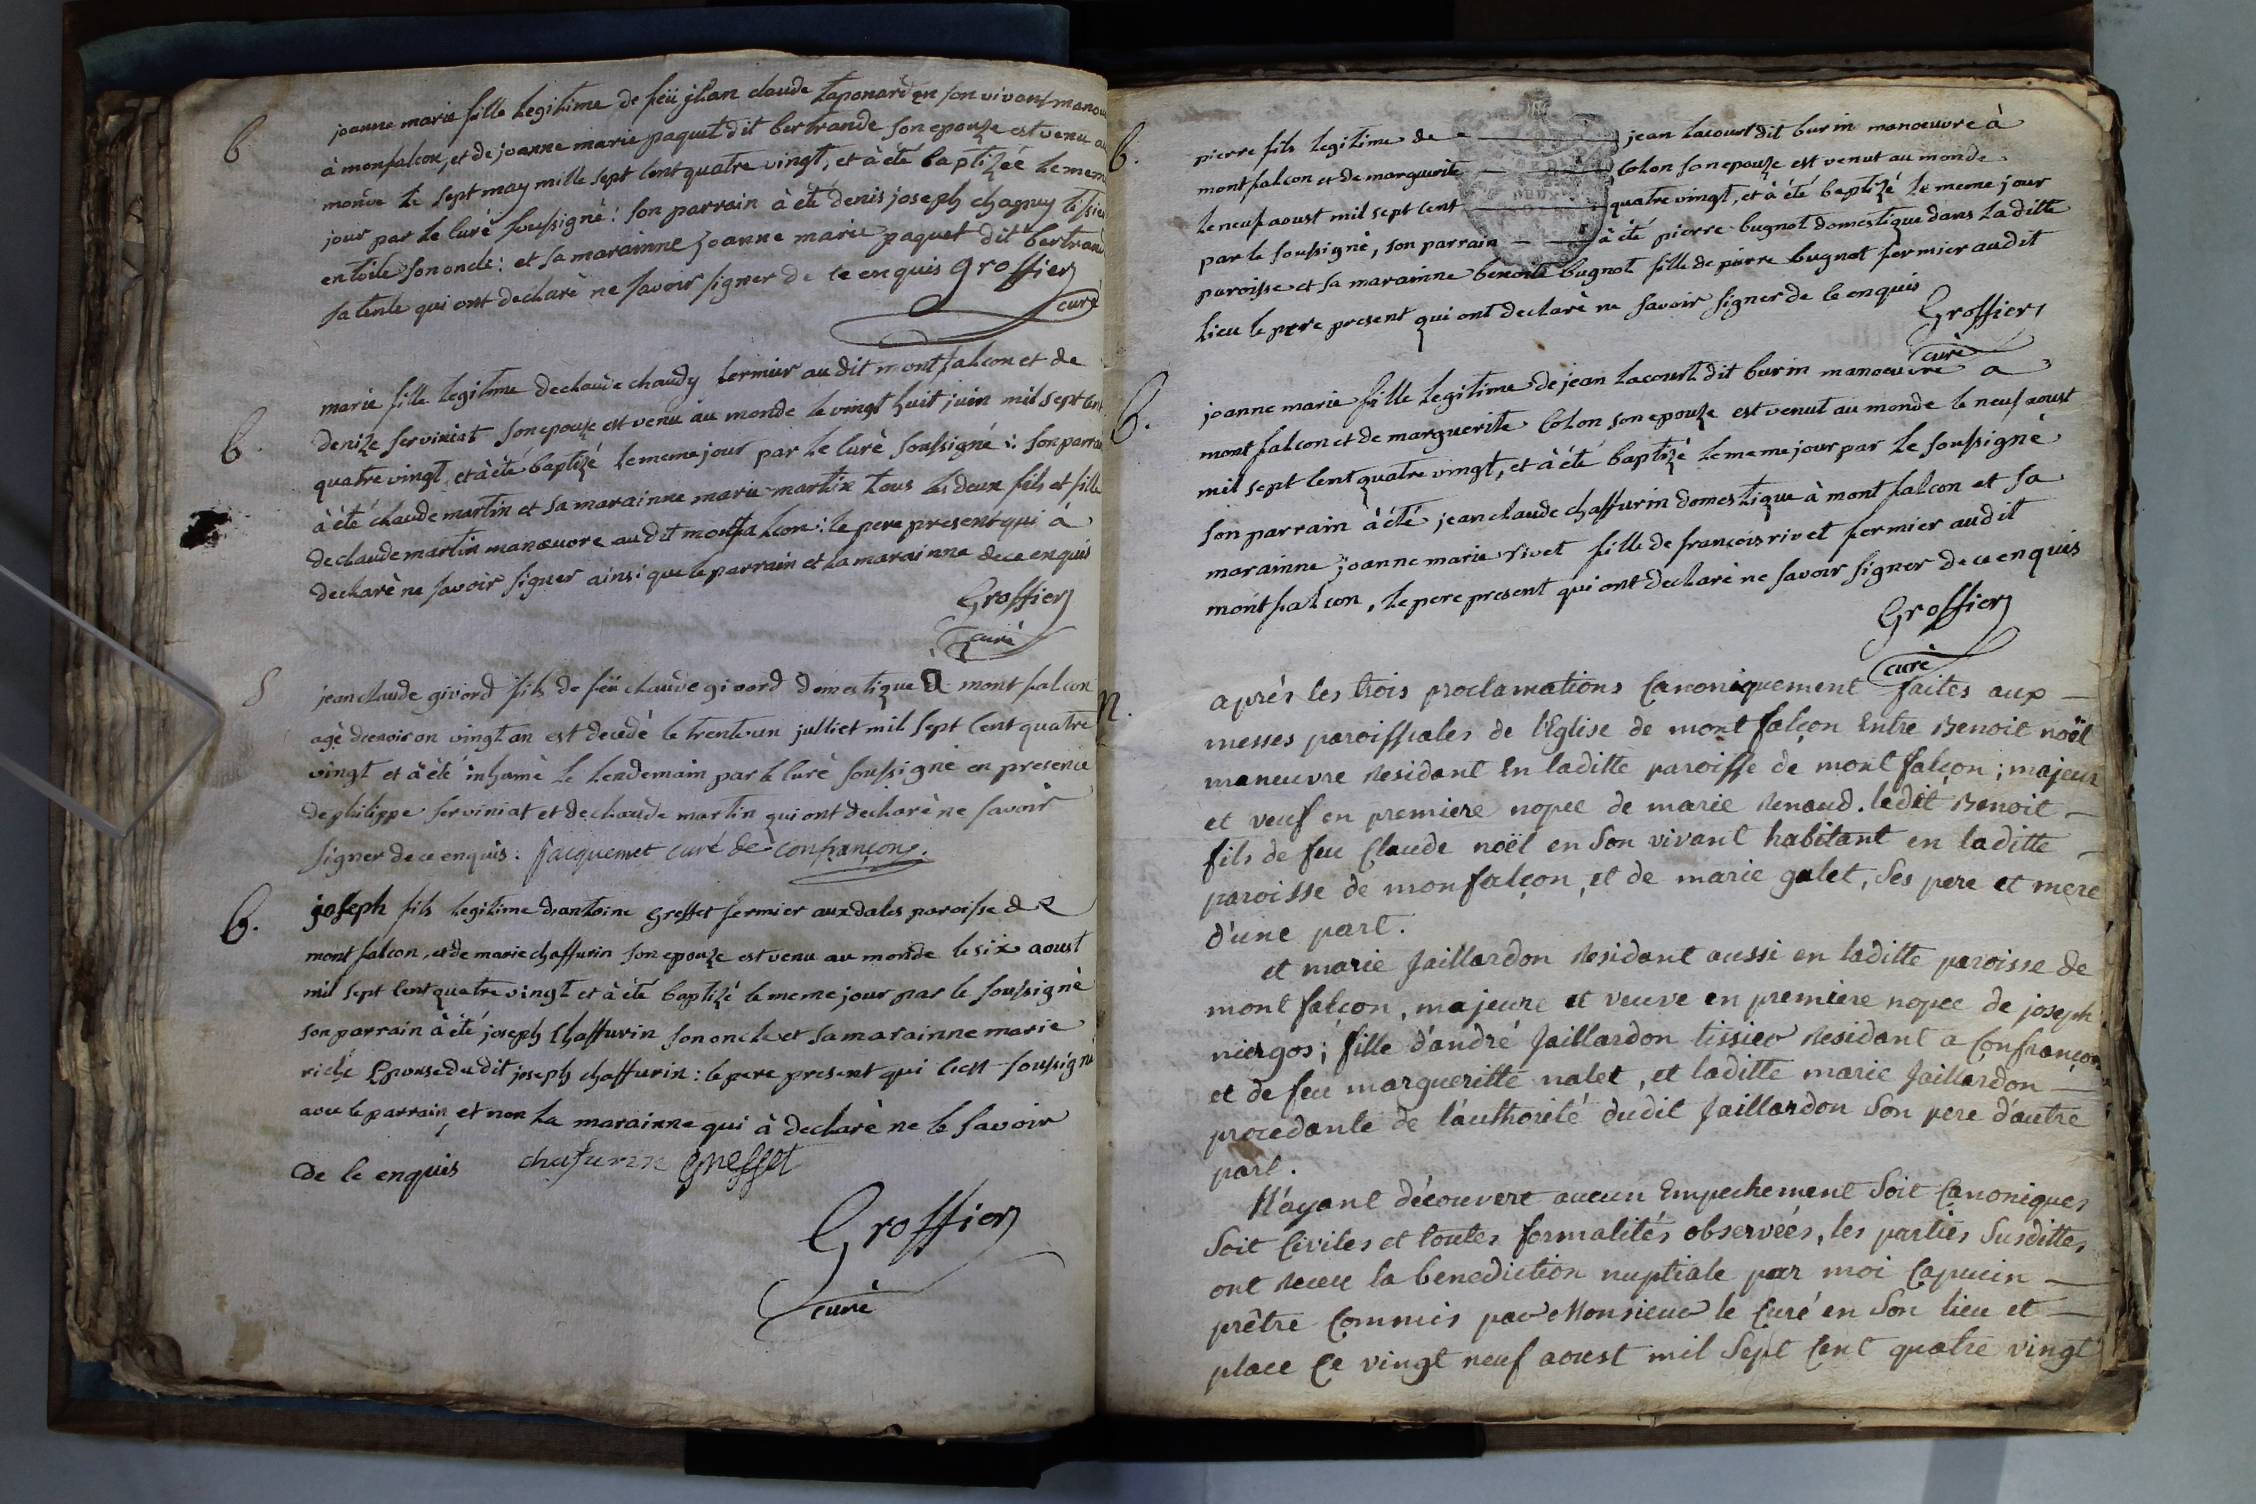 B
joanne marie fille legitime de feü jean claude taponard en son vivant manou
à monfalcon, et de joanne marie paquet dit bertrande son epouze est venu au
monde le sept may mille sept cent quatre vingt, et à été baptizéé le mem
jour par le curé soussigné: son parrain à été denis joseph chagny tissie
en toile son oncle: et sa marainne joanne marie paquet dit bertrand
sa tente qui ont declaré ne savoir signer de ce enquis Groffier
curé
B.
marie fille legitime de claude chaudy fermier au dit montfalcon et de
denize serviniat son epouze est venu au monde le vingt huit juin mil sept cen
quatre vingt, et à été baptizé le meme jour par le curé soussigné: son parra
à été claude martin et sa marainne marie martin tous les deux fils et fille
de claude martin manœuvre au dit montfalcon: le pere present qui à
declaré ne savoir signer ainsi que le parrain et la marainne de ce enquis
Groffier
curé
S
jean claude givord fils de feü claude givord domestique à montfalcon
agé d'environ vingt an est decedé le trentun julliet mil sept cent quatre
vingt et à été inhumé le lendemain par le curé soussigné en presence
de philippe serviniat et de claude martin qui ont declaré ne savoir
signer de ce enquis: Jacquemet curé de confrançon.
B.
joseph fils legitime d'antoine Greffet fermier aux dales paroisse de
montfalcon, et de marie chaffurin son epouze est venu au monde le six aoust
mil sept cent quatre vingt et à été baptizé le meme jour par le soussigné
son parrain à été joseph chaffurin son oncle et sa marainne marie
riche Epouse du dit joseph chaffurin: le pere present qui s'est soussigné
avec le parrain, et non la marainne qui à declaré ne le savoir
de ce enquis chafurin Greffet
Groffier
curé
B.
pierre fils legitime de jean lacourt dit burin manoeuvre à
montfalcon et de marguerite colon son epouze est venut au monde
le neuf aoust mil sept cent quatre vingt, et à été baptizé le meme jour
par le soussigné, son parrain à été pierre bugnot domestique dans la ditte
paroisse et sa marainne benoite bugnot fille de pierre bugnot fermier au dit
lieu le pere present qui ont declaré ne savoir signer de ce enquis
Groffier
curé
B.
joanne marie fille legitime de jean lacourt dit burin manoeuvre a
montfalcon et de marguerite colon son epouze est venut au monde le neuf aoust
mil sept cent quatre vingt, et à été baptizé le meme jour par le soussigné
son parrain à été jean claude chaffurin domestique à montfalcon et sa
marainne joanne marie rivet fille de françois rivet fermier au dit
montfalcon, le pere present qui ont declaré ne savoir signer de ce enquis
Groffier
curé
n.
aprés les trois proclamations Canoniquement faites aux
messes paroissiales de l'Eglise de montfalçon Entre Benoit noël
maneuvre Residant En laditte paroisse de montfalçon; majeur
et veuf en premiere nopce de marie Renaud. ledit Benoit
fils de feu Claude noël en Son vivant habitant en laditte
paroisse de monfalçon, et de marie galet, Ses pere et mere
d'une part.
et marie Jaillardon Residant aussi en laditte paroisse de
montfalçon, majeure et veuve en premiere nopce de joseph
niergos; fille d'andré Jaillardon tissier Residant a Confrançon
et de feu margueritte nalet, et laditte marie Jaillardon
procedante de l'authorité dudit Jaillardon Son pere d'autre
part.
N'ayant découvert aucun Empechement Soit Canoniques
Soit Civiles et toutes formalités observéés, les parties Susdittes
ont Receu la benediction nuptiale par moi Capucin
prêtre Commis par Monsieur le Curé en Son lieu et
place Ce vingt neuf aoust mil Sept Cent quatre vingt